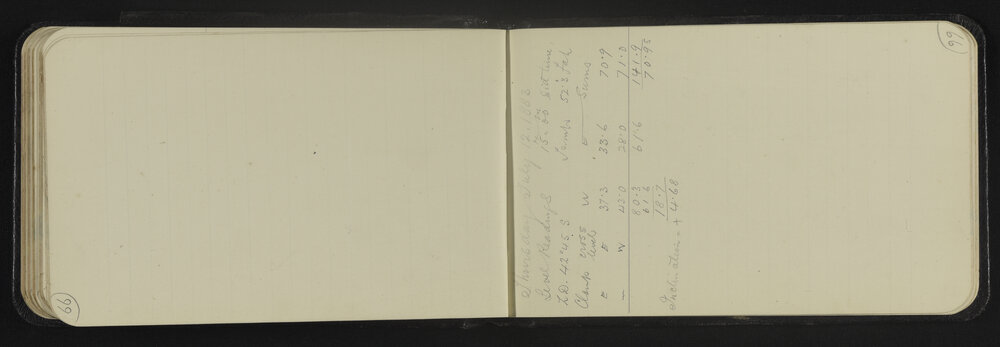 99
Thursday July 12. 1883
Level Readings 15 Sid time.
Z.D. 42°45' S Temp 52.3 Fah
Clamp cross levels W E Sums
E E 37.3 33.6 70.9
W 43.0 28.0 71.0
80.3 61.6 141.9
61.6 70.95
18.7
Inclination = + 4.68
99